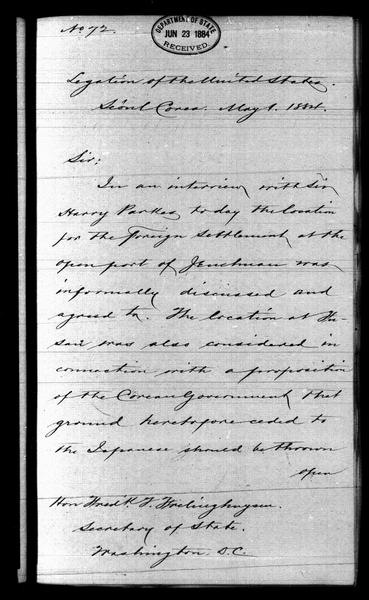 No 72.
DEPARTMENT OF STATE
JUN 23 1884
RECEIVED.
Legation of the United States.
Séoul Corea. May 1. 1884.
Sir;
In an interview with Sir
Harry Parkes to day the location
for the Foreign Settlement at the
open port of Jenchuan was
informally discussed and
agreed to. The location at Fu-
san was also considered in
connection with a proposition
of the Corean Government that
ground heretofore ceded to
the Japanese should be thrown
open
Hon Fred'k. T. Frelinghuysen.
Secretary of State.
Washington D.C.